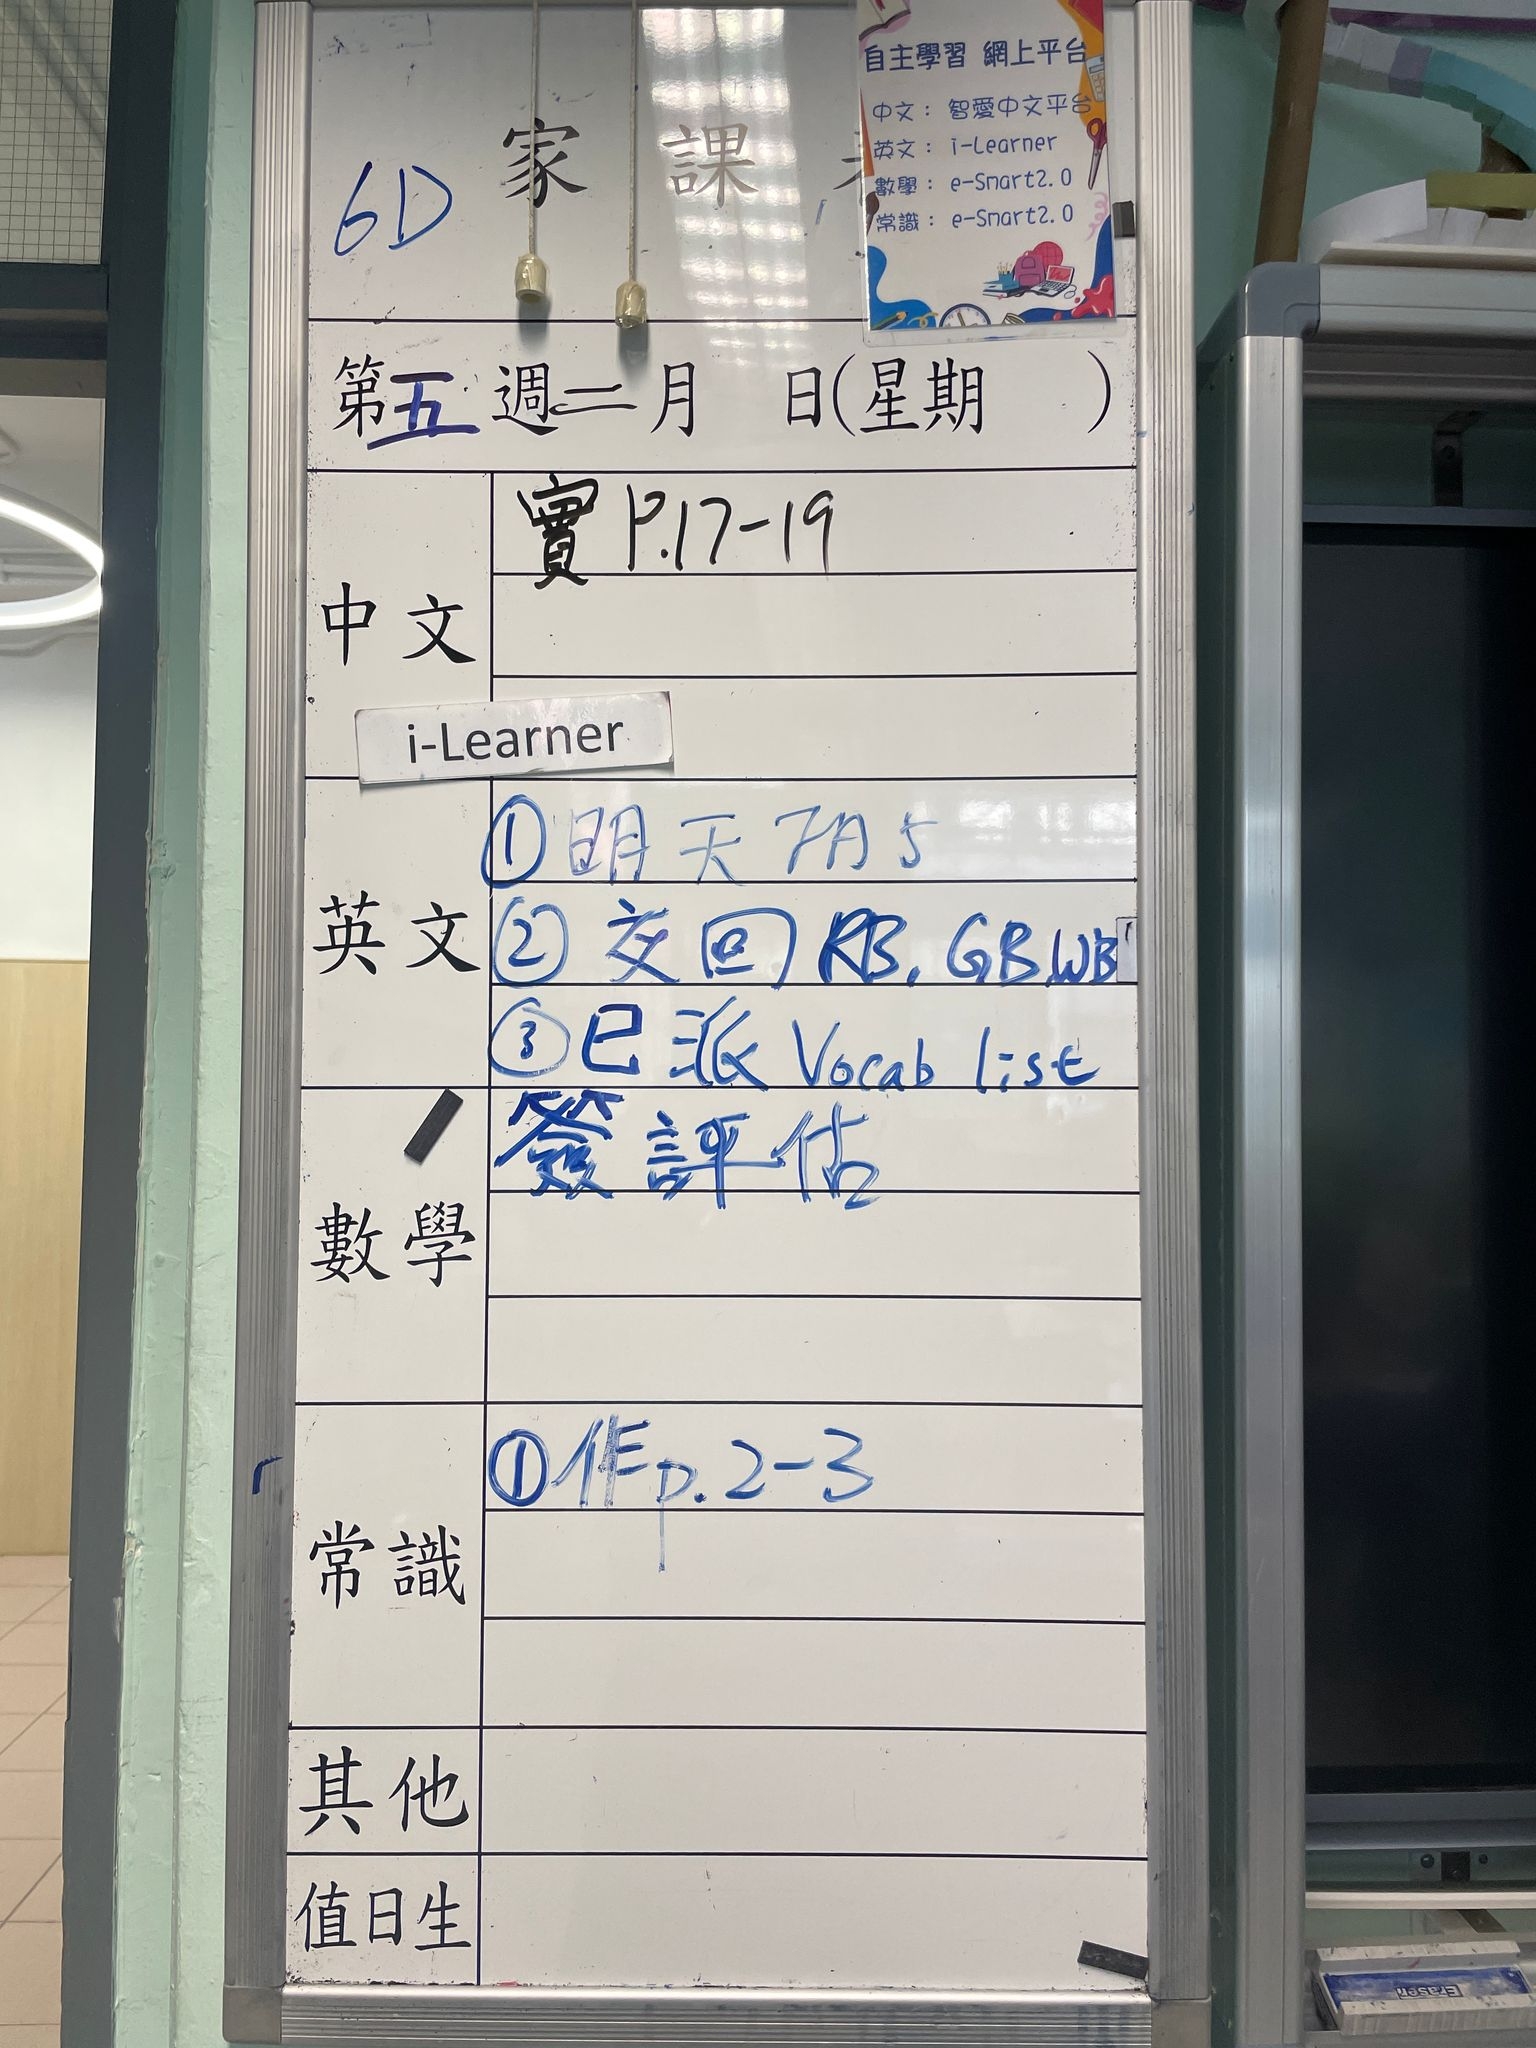 6D
家 課
自主學習 網上平台
中文： 智愛中文平台
英文： i-Learner
數學： e-Smart2.0
常識： e-Smart2.0
第五週二月 日(星期 )
中文
實 P.17-19
i-Learner
英文
① 明天
② 交回 RB, GB, WB
③ 已派 Vocab list
數學
簽評估
常識
① 作 p.2-3
其他
值日生
Eraser